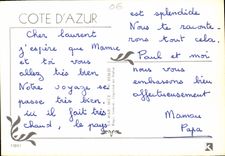 COTE D'AZUR
06
Cher Laurent
j'espère que Mamie
et toi vous
allez très bien
Notre voyage se
passe très bien
ici il fait très
chaud, le pays
est splendide
Nous te raconte-
rons tout cela.
Paul et moi
nous vous
embrassons bien
affectueusement
Maman
Papa